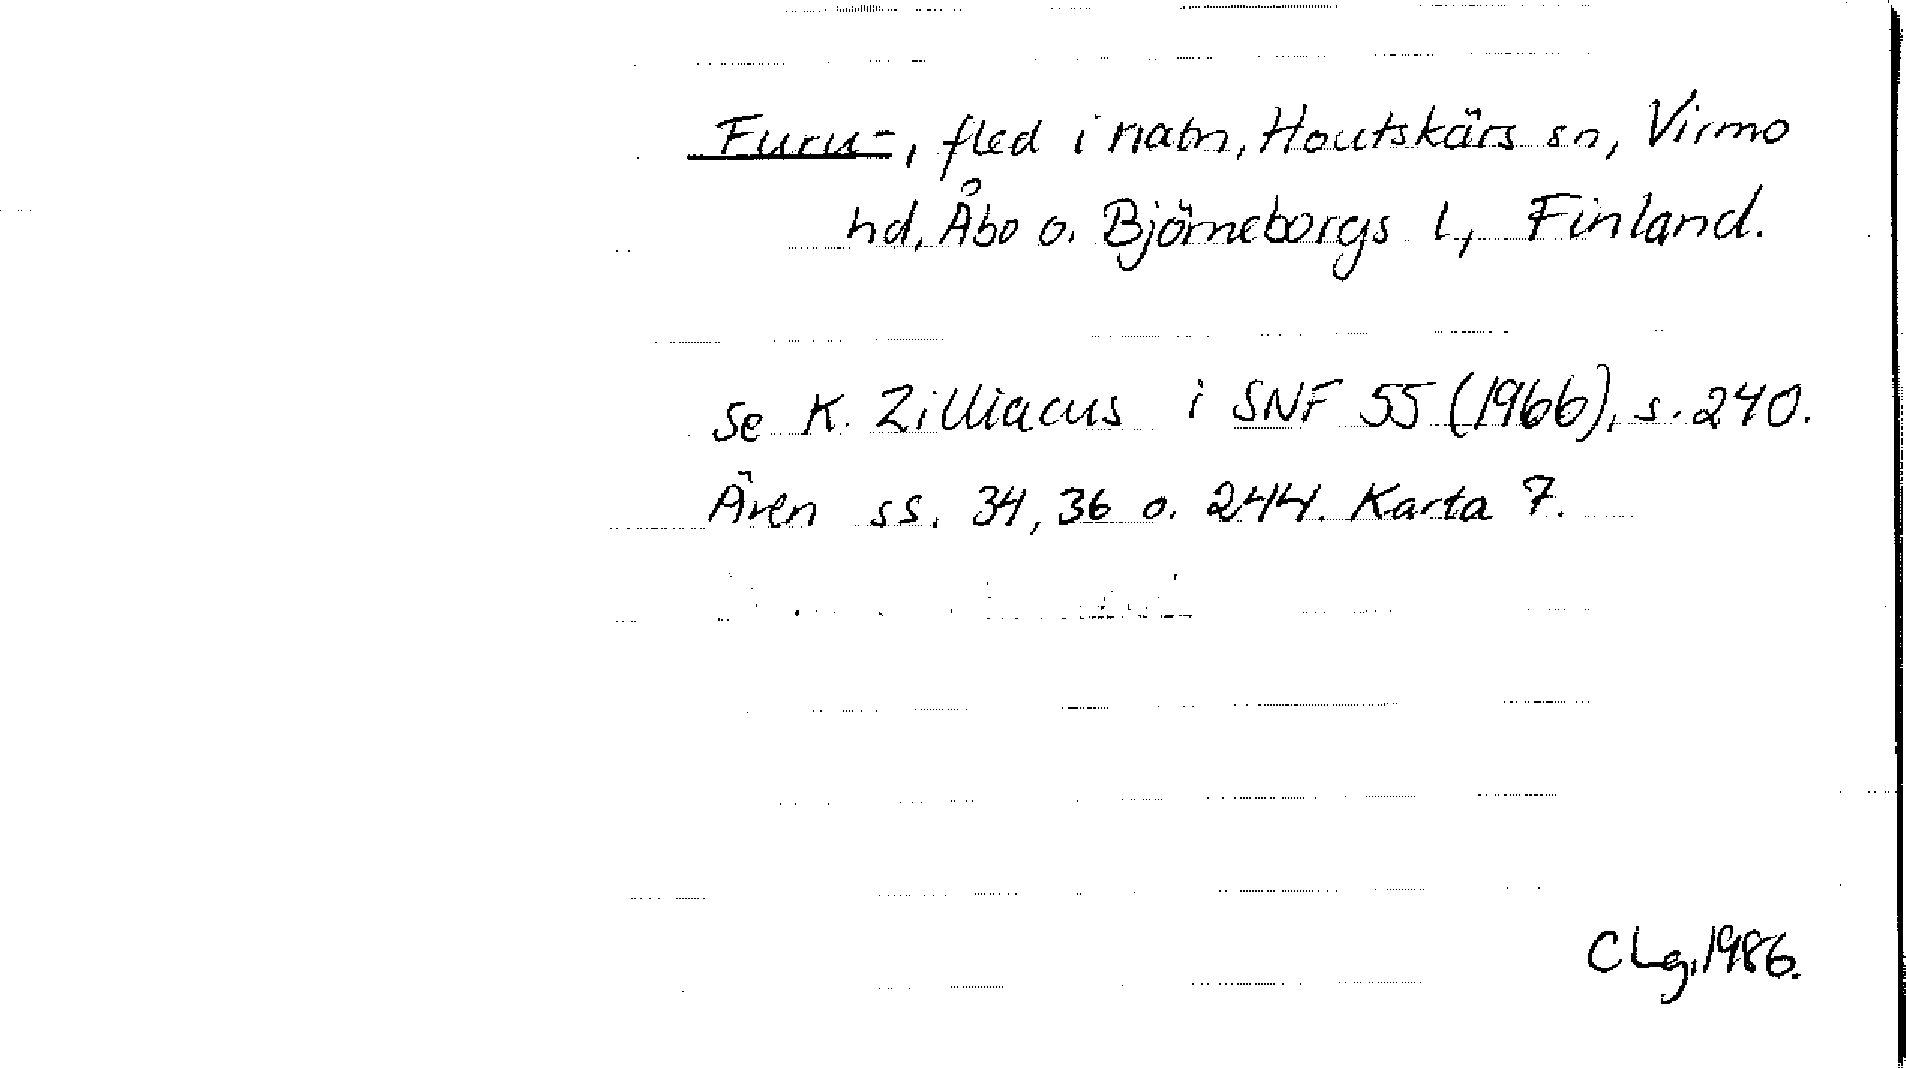 Furu-, fled i natn, Houtskärs sn, Virmo
hd, Åbo o. Björneborgs l, Finland.
Se K. Zilliacus i SNF 55 (1966), s. 240.
Även ss. 34, 36 o. 244. Karta 7.
CLg, 1986.